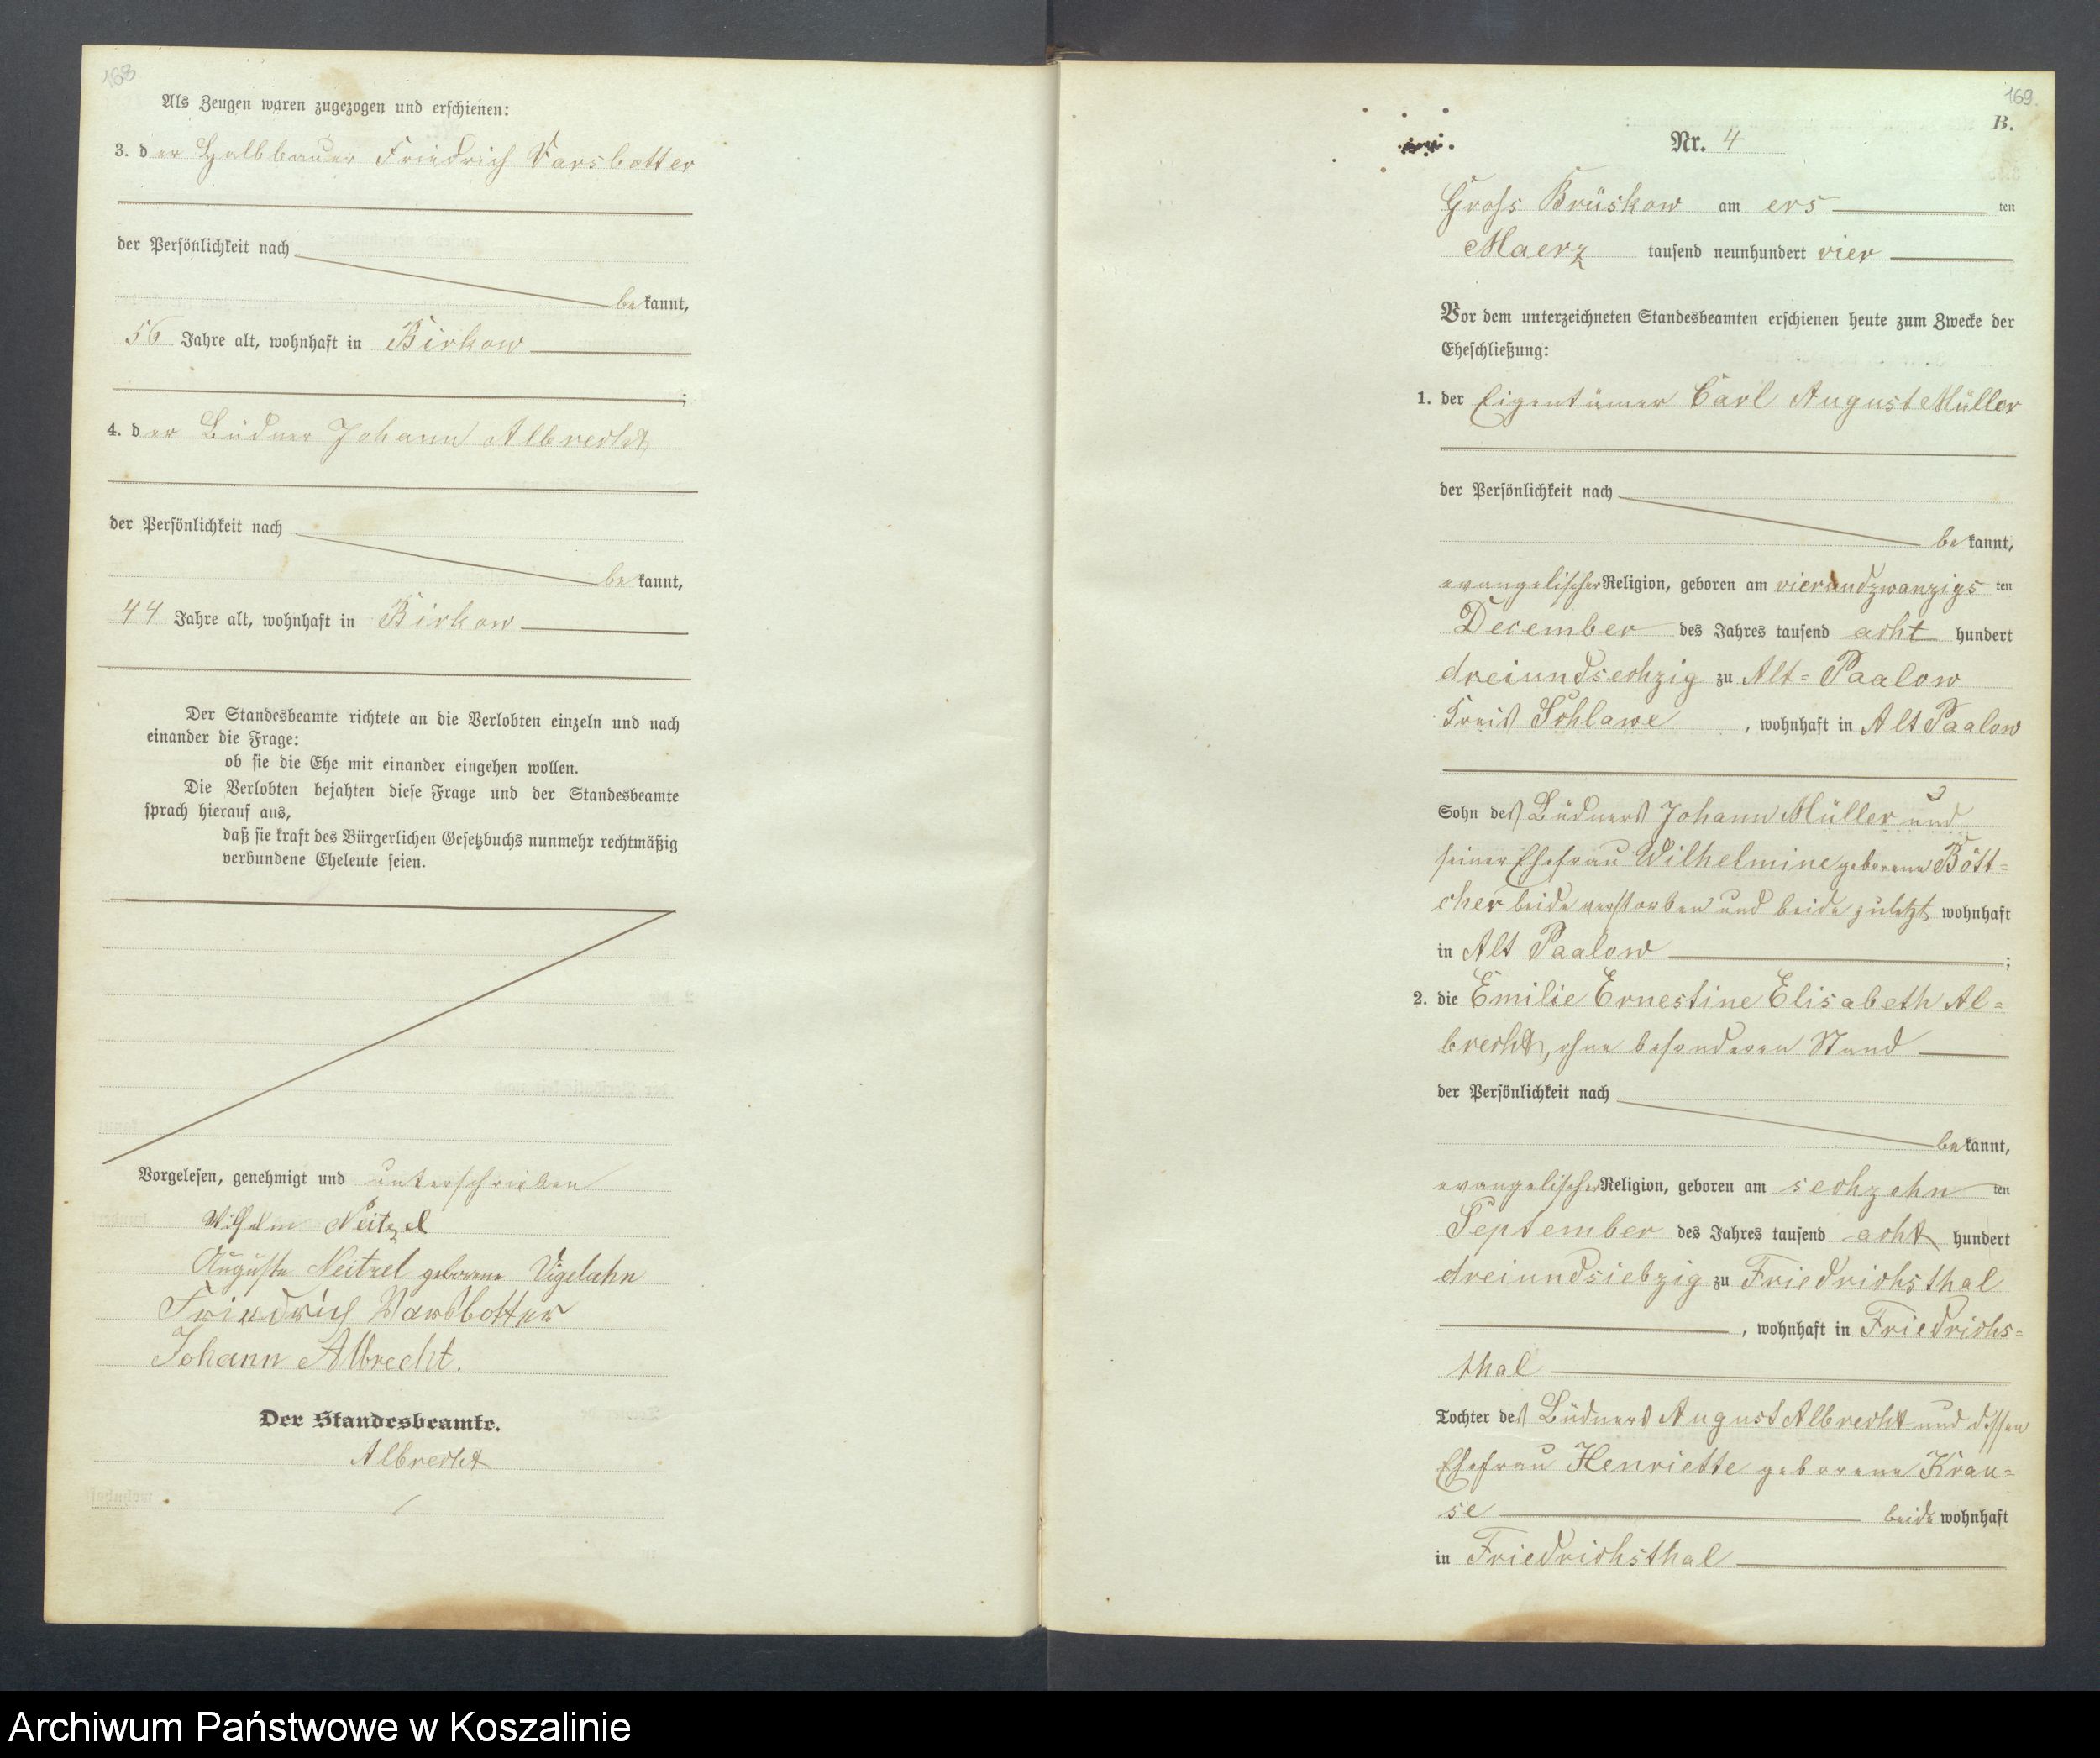 168
Als Zeugen waren zugezogen und erschienen:
3. der Halbbauer Friedrich Varsbotter
der Persönlichkeit nach
bekannt,
56 Jahre alt, wohnhaft in Birkow
;
4. der Büdner Johann Albrecht
der Persönlichkeit nach
bekannt,
44 Jahre alt, wohnhaft in Birkow
Der Standesbeamte richtete an die Verlobten einzeln und nach
einander die Frage:
ob sie die Ehe mit einander eingehen wollen.
Die Verlobten bejahten diese Frage und der Standesbeamte
sprach hierauf aus,
daß sie kraft des Bürgerlichen Gesetzbuchs nunmehr rechtmäßig
verbundene Eheleute seien.
Vorgelesen, genehmigt und unterschrieben
Wilhelm Neitzel
Auguste Neitzel geborene Vigelahn
Friedrich Varsbotter
Johann Albrecht.
Der Standesbeamte.
Albrecht
169.
B.
Nr. 4
Gross Brüskow am ersten
Maerz tausend neunhundert vier
Vor dem unterzeichneten Standesbeamten erschienen heute zum Zwecke der
Eheschließung:
1. der Eigentümer Carl August Müller
der Persönlichkeit nach
bekannt,
evangelischer Religion, geboren am vierundzwanzigsten
December des Jahres tausend acht hundert
dreiundsechzig zu Alt-Paalow
Kreis Schlawe, wohnhaft in Alt Paalow
Sohn des Büdners Johann Müller und
seiner Ehefrau Wilhelmine geborene Bött-
cher beide verstorben und beide zuletzt wohnhaft
in Alt Paalow ;
2. die Emilie Ernestine Elisabeth Al-
brecht, ohne besonderen Stand
der Persönlichkeit nach
bekannt,
evangelischer Religion, geboren am sechzehnten
September des Jahres tausend acht hundert
dreiundsiebzig zu Friedrichsthal
, wohnhaft in Friedrichs-
thal
Tochter des Büdners August Albrecht und dessen
Ehefrau Henriette geborene Krau-
se beide wohnhaft
in Friedrichsthal
Archiwum Państwowe w Koszalinie